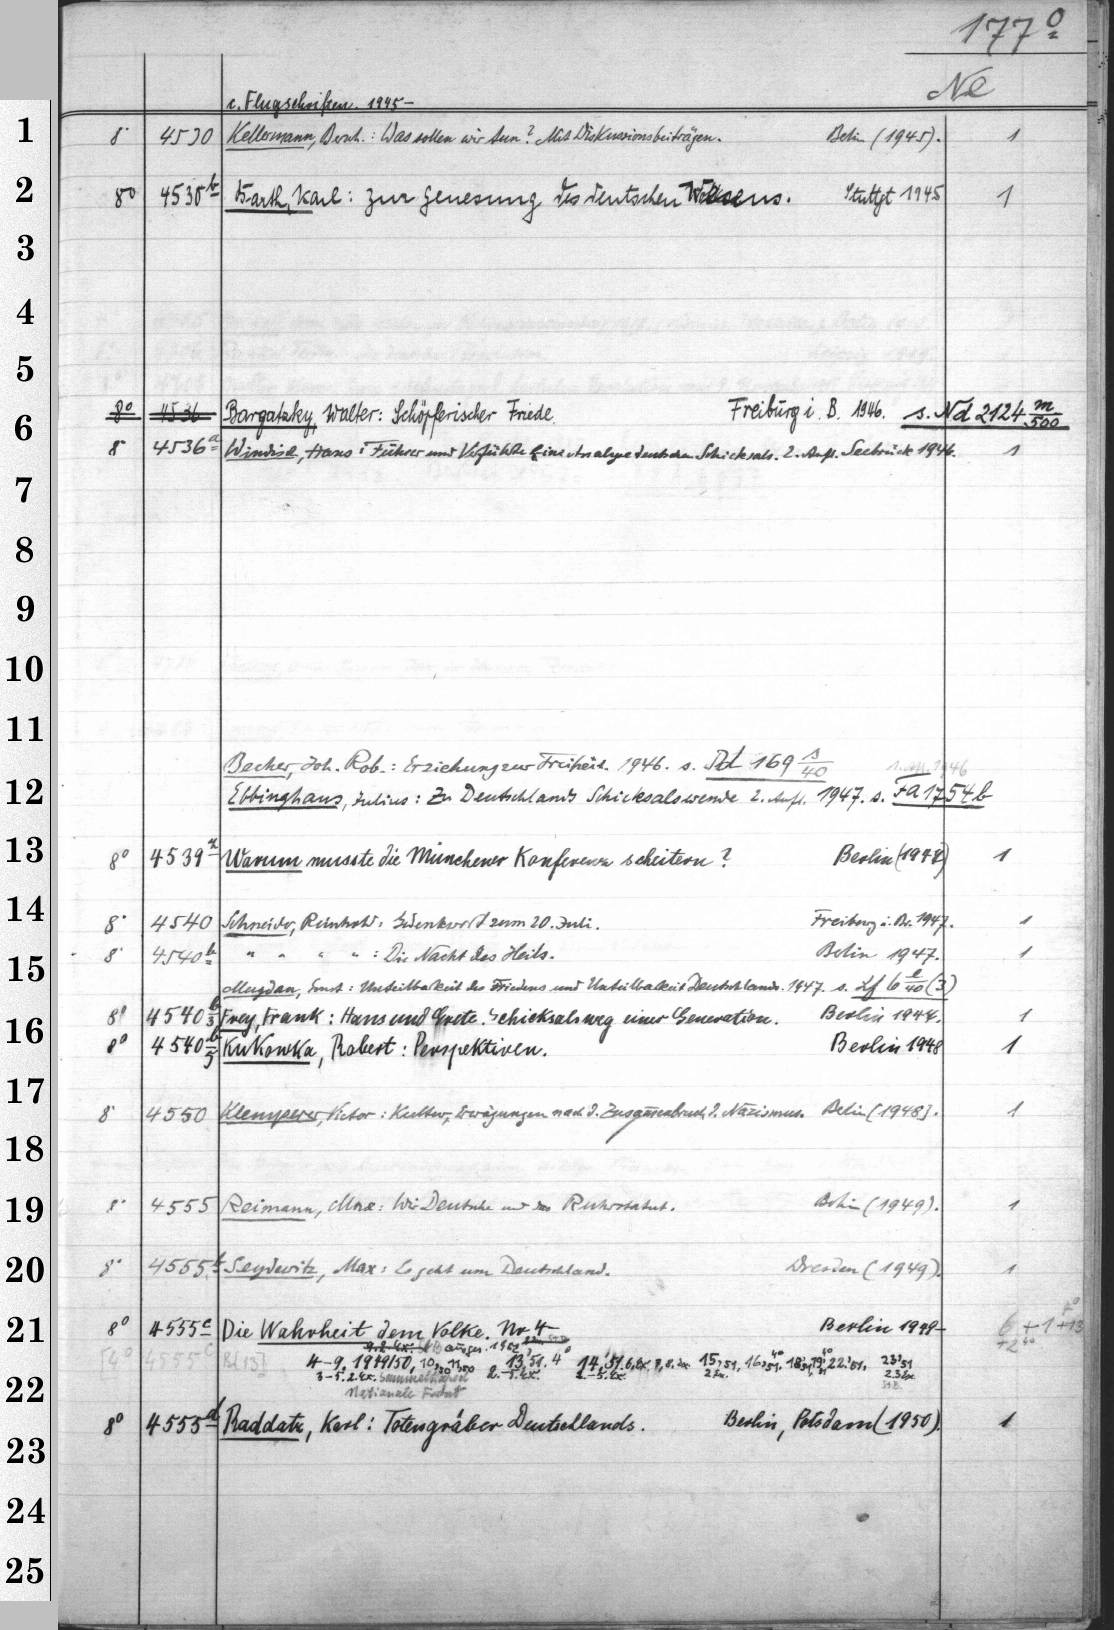 177 0/2
Ne
c. Flugschriften. 1945-
1
8° 4530 Kellermann, Bernh.: Was sollen wir tun? Mit Diskussionsbeiträgen. Berlin (1945). 1
2
8° 4530 b Barth, Karl: Zur Genesung des deutschen Wesens. Stuttgt 1945 1
3
4
5
8° 4536 Bargatzky, Walter: Schöpferischer Friede. Freiburg i. B. 1946. s. Nd 2124 m/500
6
8° 4536 a Windisch, Hans: Führer und Verführte Eine Analyse deutschen Schicksals. 2. Aufl. Seebruck 1946. 1
7
8
9
10
11
Becher, Joh. Rob.: Erziehung zur Freiheit. 1946. s. 169 s/40
12
Ebbinghaus, Julius: Zu Deutschlands Schicksalswende 2. Aufl. 1947. s. Fa 1754 b
13
8° 4539 Warum musste die Münchener Konferenz scheitern? Berlin (1947) 1
14
8° 4540 Schneider, Reinhold: Gedenkwort zum 20. Juli. Freiburg i. Br. 1947. 1
8° 4540 b " " " ": Die Nacht des Heils. Berlin 1947. 1
15
Mugdan, Ernst: Unteilbarkeit des Friedens und Unteilbarkeit Deutschlands. 1947. s. (3)
8° 4540 b/3 Frey, Frank: Hans und Grete. Schicksalsweg einer Generation. Berlin 1947. 1
16
8° 4540 b/5 Kukowka, Robert: Perspektiven. Berlin 1948 1
17
8° 4550 Klemperer, Victor: Kultur, Erwägungen nach d. Zusammenbruch d. Nazismus. Berlin [1948]. 1
18
19
8° 4555 Reimann, Max: Wir Deutsche und das Ruhrstatut. Berlin (1949). 1
20
8° 4555 b Seydewitz, Max: Es geht um Deutschland. Dresden (1949). 1
21
8° 4555 c Die Wahrheit dem Volke. Nr. 4- Berlin 1949- 6 +1 +13
[4° 4555 c 4-9, 1949/50, 10,50 11,50 13,51. 4° 14,51. 15,51, 16,51. 22,51, 23,51
22
Nationale Front
8° 4555 d Raddatz, Karl: Totengräber Deutschlands. Berlin, Potsdam (1950). 1
23
24
25